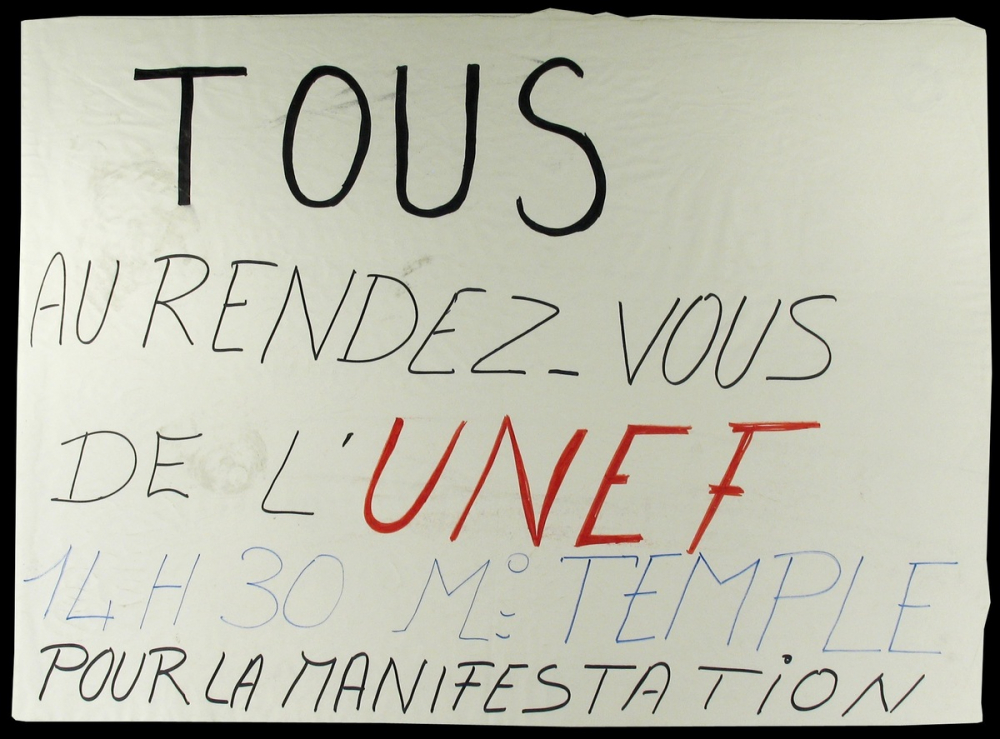 TOUS
AU RENDEZ-VOUS
DE L'UNEF
14H30 M° TEMPLE
POUR LA MANIFESTATION